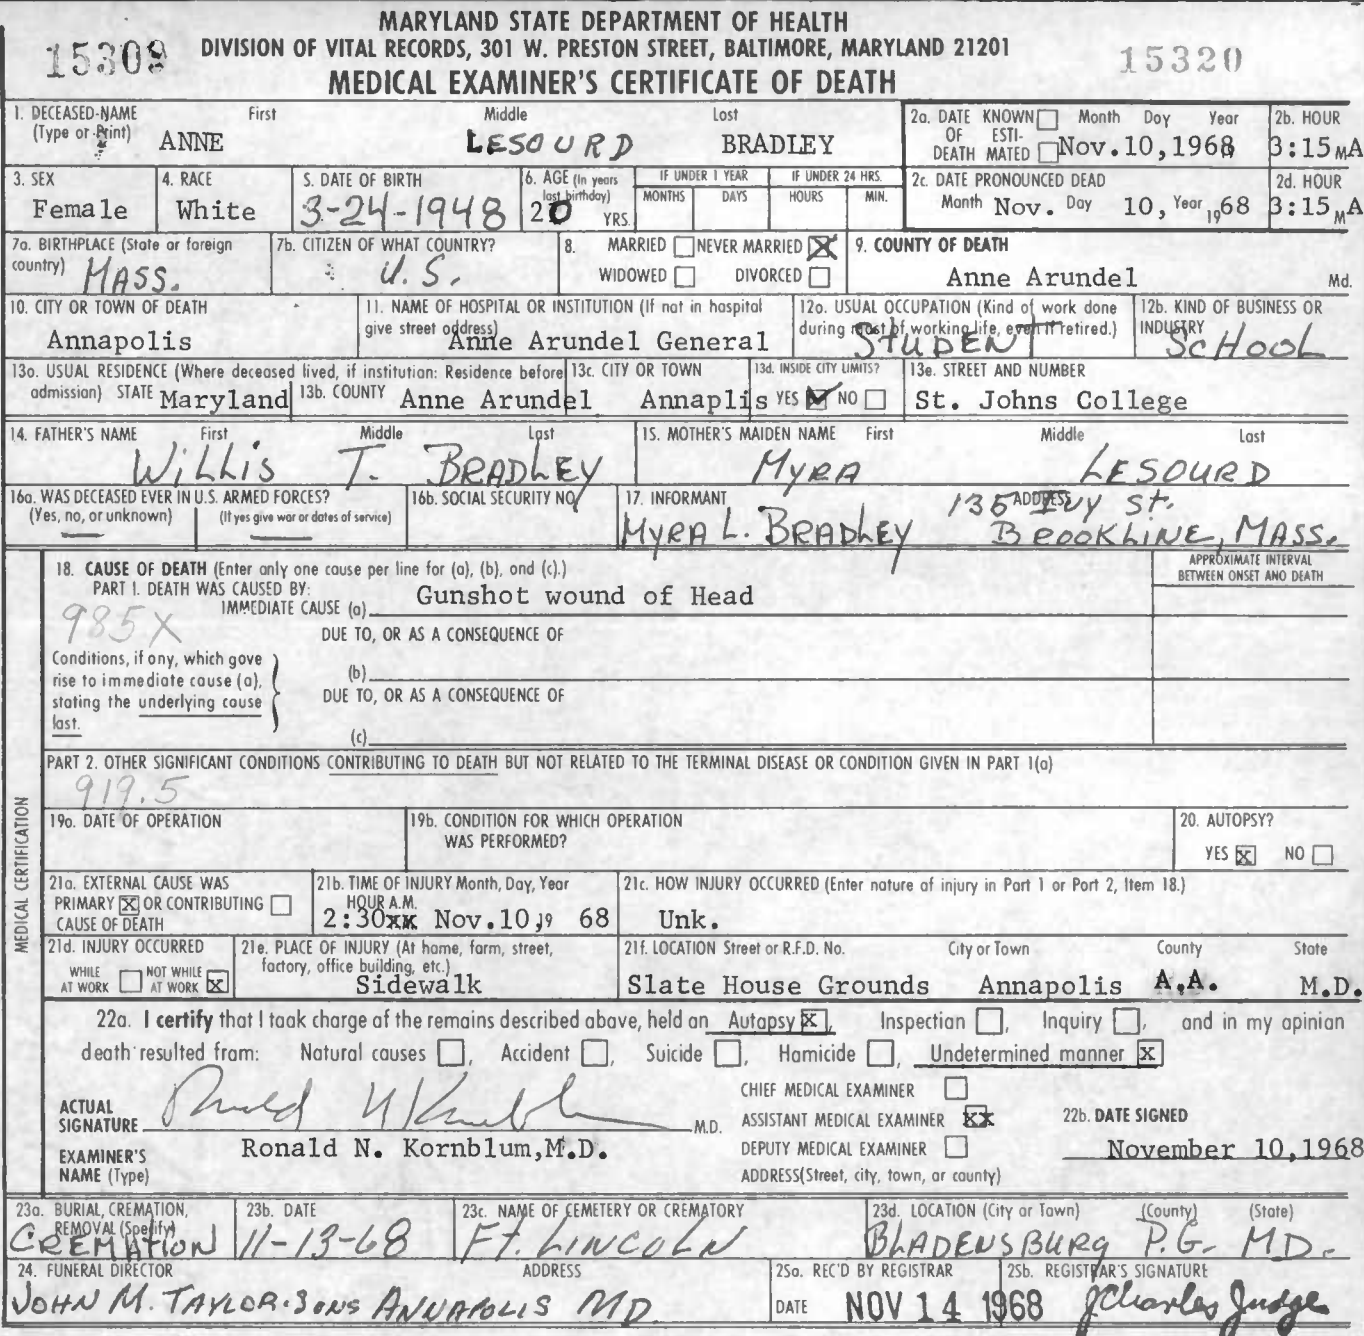 MARYLAND STATE DEPARTMENT OF HEALTH
15309 DIVISION OF VITAL RECORDS, 301 W. PRESTON STREET, BALTIMORE, MARYLAND 21201 15320
MEDICAL EXAMINER'S CERTIFICATE OF DEATH
1. DECEASED-NAME (Type or Print) First Middle Last
ANNE LESOURD BRADLEY
2a. DATE OF DEATH KNOWN ESTIMATED Month Day Year
Nov.10,1968
2b. HOUR
3:15 M A
3. SEX
Female
4. RACE
White
5. DATE OF BIRTH
3-24-1948
6. AGE (In years last birthday)
20 YRS.
IF UNDER 1 YEAR MONTHS DAYS
IF UNDER 24 HRS. HOURS MIN.
2c. DATE PRONOUNCED DEAD
Month Nov. Day 10, Year 1968
2d. HOUR
3:15 M A
7a. BIRTHPLACE (State or foreign country)
MASS.
7b. CITIZEN OF WHAT COUNTRY?
U.S.
8. MARRIED NEVER MARRIED X
WIDOWED DIVORCED
9. COUNTY OF DEATH
Anne Arundel Md.
10. CITY OR TOWN OF DEATH
Annapolis
11. NAME OF HOSPITAL OR INSTITUTION (If not in hospital give street address)
Anne Arundel General
12a. USUAL OCCUPATION (Kind of work done during most of working life, even if retired.)
STUDENT
12b. KIND OF BUSINESS OR INDUSTRY
SCHOOL
13a. USUAL RESIDENCE (Where deceased lived, if institution: Residence before admission) STATE Maryland
13b. COUNTY Anne Arundel
13c. CITY OR TOWN
Annaplis
13d. INSIDE CITY LIMITS?
YES NO
13e. STREET AND NUMBER
St. Johns College
14. FATHER'S NAME First Middle Last
WILLIS T. BRADLEY
15. MOTHER'S MAIDEN NAME First Middle Last
MYRA LESOURD
16a. WAS DECEASED EVER IN U.S. ARMED FORCES?
(Yes, no, or unknown) (If yes give war or dates of service)
16b. SOCIAL SECURITY NO.
17. INFORMANT ADDRESS
MYRA L. BRADLEY 135 IVY St. BROOKLINE, MASS.
18. CAUSE OF DEATH (Enter only one cause per line for (a), (b), and (c).)
APPROXIMATE INTERVAL BETWEEN ONSET AND DEATH
PART I. DEATH WAS CAUSED BY:
IMMEDIATE CAUSE (a) Gunshot wound of Head
985X
DUE TO, OR AS A CONSEQUENCE OF
Conditions, if any, which gave rise to immediate cause (a), stating the underlying cause last.
(b)
DUE TO, OR AS A CONSEQUENCE OF
(c)
PART 2. OTHER SIGNIFICANT CONDITIONS CONTRIBUTING TO DEATH BUT NOT RELATED TO THE TERMINAL DISEASE OR CONDITION GIVEN IN PART 1(a)
919.5
MEDICAL CERTIFICATION
19a. DATE OF OPERATION
19b. CONDITION FOR WHICH OPERATION WAS PERFORMED?
20. AUTOPSY?
YES X NO
21a. EXTERNAL CAUSE WAS
PRIMARY X OR CONTRIBUTING
CAUSE OF DEATH
21b. TIME OF INJURY Month, Day, Year
HOUR A.M.
2:30xx Nov.10,19 68
21c. HOW INJURY OCCURRED (Enter nature of injury in Part 1 or Part 2, Item 18.)
Unk.
21d. INJURY OCCURRED
WHILE AT WORK NOT WHILE AT WORK X
21e. PLACE OF INJURY (At home, farm, street, factory, office building, etc.)
Sidewalk
21f. LOCATION Street or R.F.D. No. City or Town County State
Slate House Grounds Annapolis A.A. M.D.
22a. I certify that I took charge of the remains described above, held an Autopsy X, Inspection, Inquiry, and in my opinion
death resulted from: Natural causes, Accident, Suicide, Homicide, Undetermined manner X
ACTUAL SIGNATURE Ronald N Kornblum M.D.
EXAMINER'S NAME (Type) Ronald N. Kornblum,M.D.
CHIEF MEDICAL EXAMINER
ASSISTANT MEDICAL EXAMINER XX
DEPUTY MEDICAL EXAMINER
ADDRESS(Street, city, town, or county)
22b. DATE SIGNED
November 10,1968
23a. BURIAL, CREMATION, REMOVAL (Specify)
CREMATION
23b. DATE
11-13-68
23c. NAME OF CEMETERY OR CREMATORY
Ft. LINCOLN
23d. LOCATION (City or Town) (County) (State)
BLADENSBURG P.G. MD.
24. FUNERAL DIRECTOR ADDRESS
JOHN M. TAYLOR.SONS ANNAPOLIS MD.
25a. REC'D BY REGISTRAR
DATE NOV 14 1968
25b. REGISTRAR'S SIGNATURE
J Charles Judge